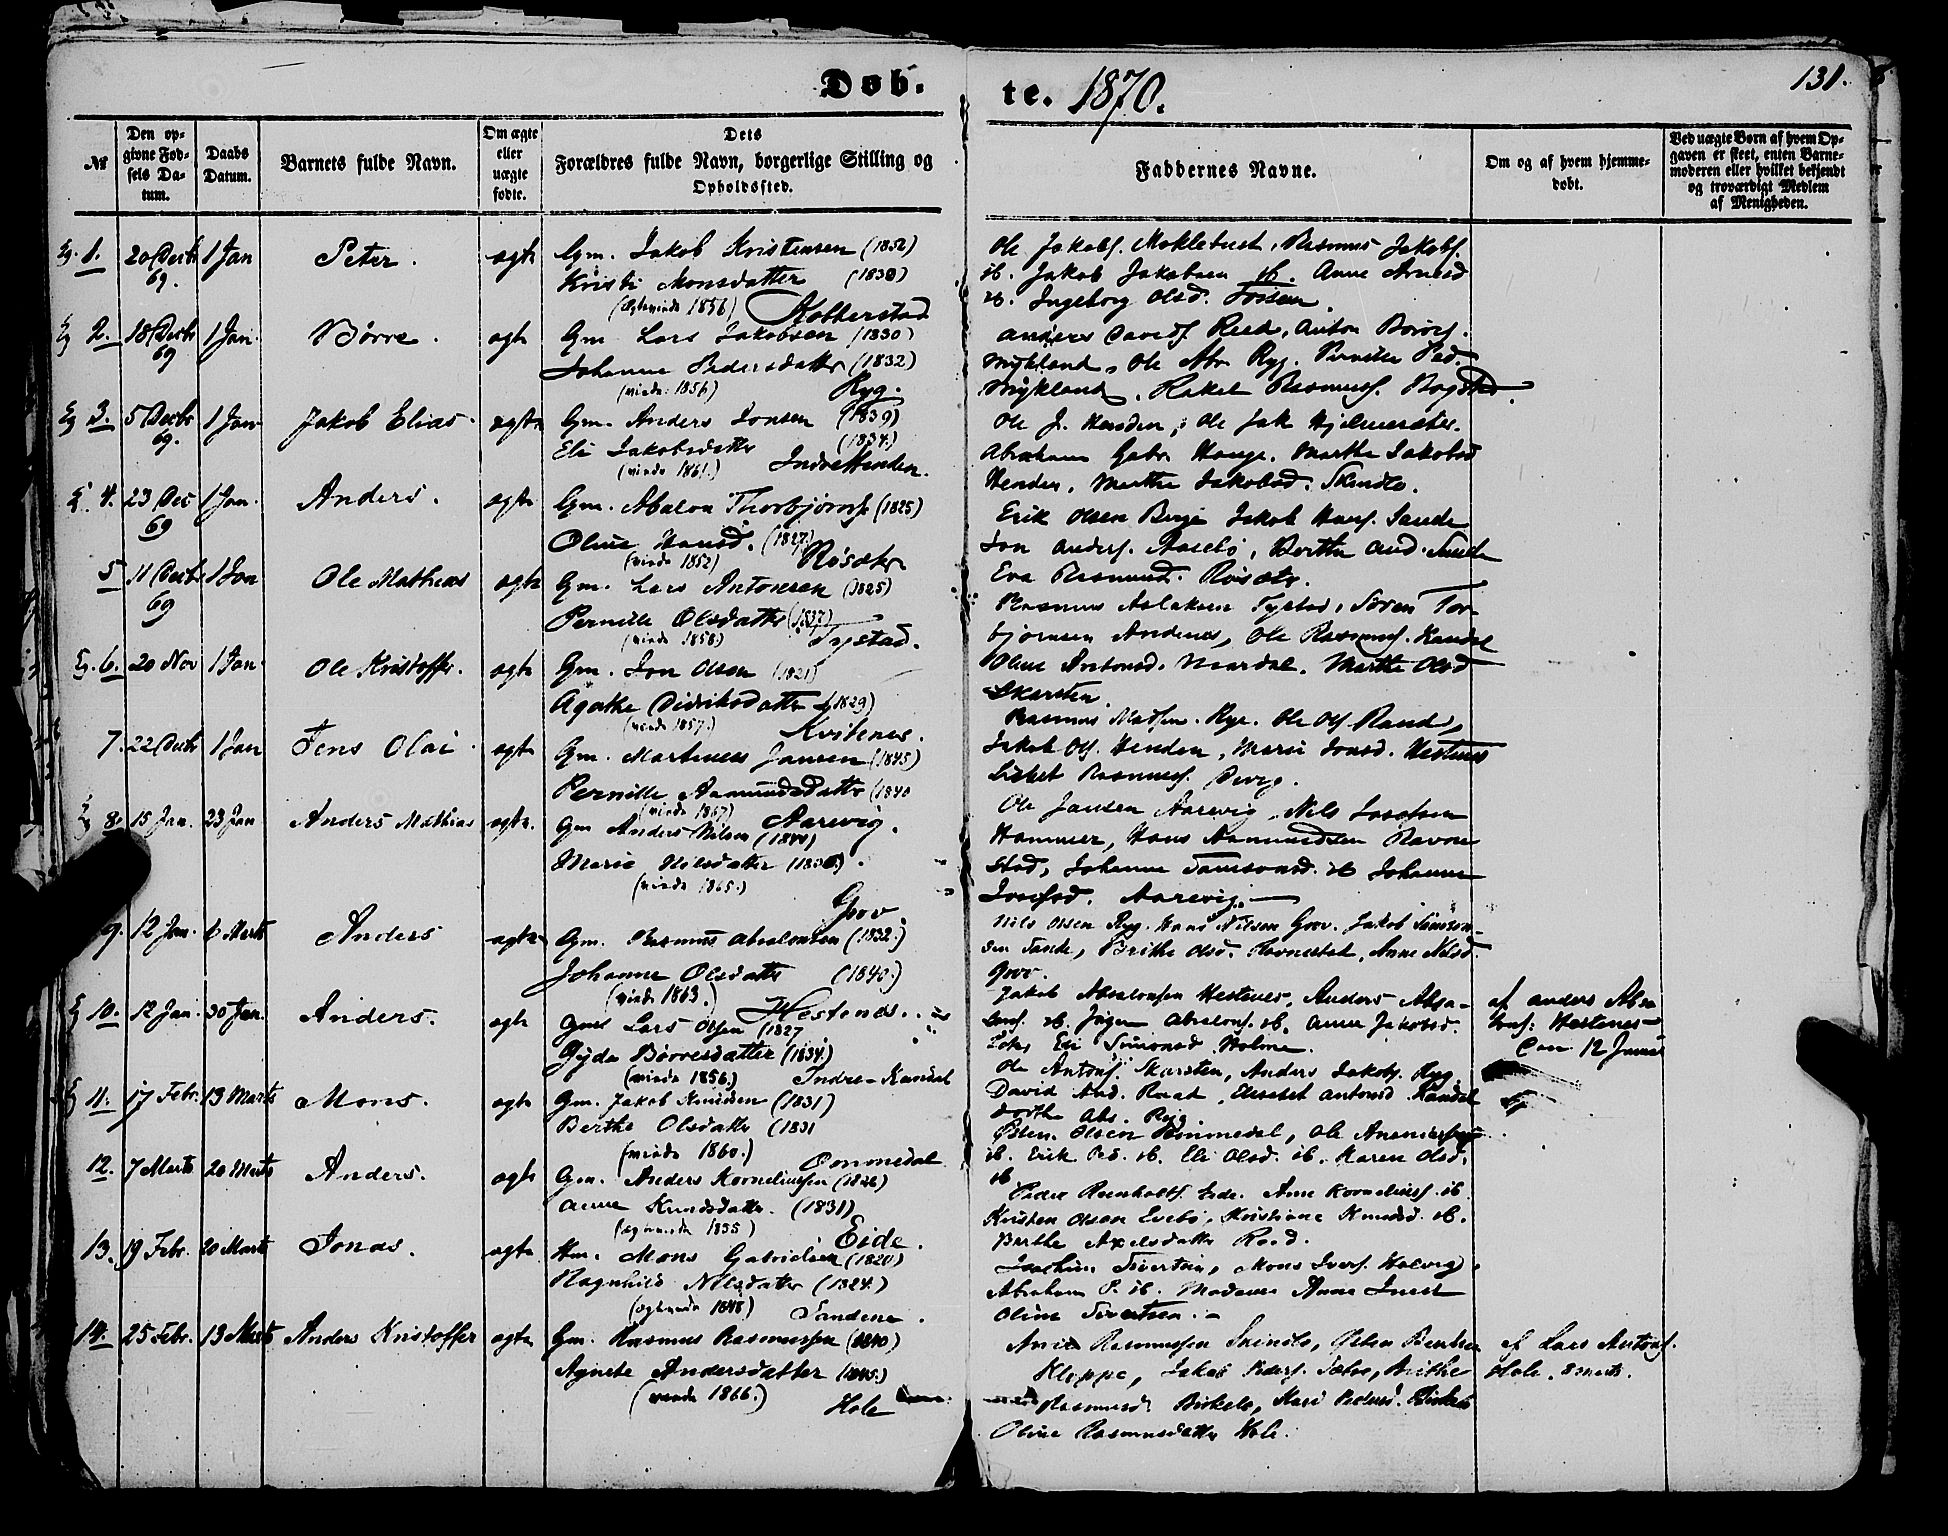 Døb-
te. 1870.
131.
№
Den op-
givne Fød-
sels Da-
tum.
Daabs
Datum.
Barnets fulde Navn.
Om ægte
eller
uægte
fødte.
Dets
Forældres fulde Navn, borgerlige Stilling og
Opholdssted.
Faddernes Navne.
Om og af hvem hjemme-
døbt.
Ved uægte Børn af hvem Op-
gaven er skeet, enten Barne-
moderen eller hvilket bekjendt
og troværdigt Medlem
af Menigheden.
1. 20 Decbr 69. 1 Jan Peter. ægte Gm. Jakob Kristensen (1852)
Kristi Monsdatter
(ægteviede 1856)
Ole Jakobs. Myklebust, Rasmus Jakobs.
ib. Jakob Jakobsen ib. Anne Arnesd
ib. Ingeborg Olsd. Fossen
2. 18 Decbr 69 1 Jan. Børre. ægte Gm Lars Jakobsen (1830)
Johanne Pedersdatter (1832)
(viede 1856) Ryg.
Anders Davids. Reed, Anton
Mykland, Ole Abr. Ryg. Pernille
Mykland, Rakel Rasmuss.
3. 5 Decbr 69. 1 Jan Jakob Elias. ægte Gm. Anders Jonsen (1839)
Eli Jakobsdatter (1834.)
(viede 1861.) Indre Henden.
Ole J. Henden, Ole Jak
Abraham Gabr. Hauge. Marthe Jakobsd
Henden, Marthe Jakobsd. Skinlo.
4. 23 Dec 69 1 Jan. Anders. ægte Gm. Absalon Thorbjørns (1825)
Oline Hansd. (1827)
(viede 1852) Røsæter
Erik Olsen Berge Jakob Hans. Sande
Jon Anders. Aasebø, Berthe And. Sande
Eva Rasmusd. Røsæter.
5 11 Decbr 69 1 Jan Ole Mathias ægte Gm. Lars Antonsen (1825)
Pernille Olsdatter (1837)
(viede 1858) Tystad.
Rasmus Aslaksen Tystad, Søren Tor-
bjørnsen Andenes, Ole Rasmuss. Kandal
Oline Antonsd. Mardal. Marthe Olsd
Skarsten.
6. 20 Nov 1 Jan Ole Kristoffer. ægte Gm. Jon Olsen (1821)
Agathe Didriksdatter (1829)
(viede 1857.) Kvitenes.
Rasmus Madsen. Rye. Ole Ols. Rand,
Jakob Ols. Henden, Marie Jonsd. Hestenes
Lisbet Rasmuss. Berge.
7. 22 Decbr 1 Jan Jens Olai ægte Gm. Martinus Jansen (1845)
Pernille Aamundsdatter (1840
(viede 1867) Aarevig.
Ole Jansen Aarevig, Nils Josefsen
Hammer, Hans Aamundsen Ravne
stad, Johanne ib Johanne
Josefsd. Aarevig.
8. 15 Jan. 23 Jan Anders Mathias ægte. Gm Anders Nilsen (1840)
Marie Nilsdatter
(viede 1865.)
Gjøv.
Nils Olsen Ryg. Hans Nilsen Gjøv. Jakob Simon-
sen Sande, Brithe Olsd. Ravnestad, Anne Nilsd.
Gjøv.
9. 12 Jan. 6 Marts Anders ægte Gm. Rasmus Absalonsen (1832.)
Johanne Olsdatter (1840.)
(viede 1863.) Hestenes.
Jakob Absalonsen Hestenes, Anders Absa-
lons. ib. Jørgen Absalons. ib. Anne Jakobsd.
Eli Simonsd Holme.
af Anders Absa
lons: Hestenes
den 12 Januar
10. 12 Jan. 30 Jan. Anders. ægte Gm Lars Olsen (1827
Gyda Børresdatter (1834.)
(viede 1856.) Indre-Kandal
Ole Antons. Skarsten, Anders Jakobs. Ryg,
David And. Reed, Elisabet Antonsd Kandal
Dorthe Abs. Ryg
11. 17 Febr. 13 Marts Mons. ægte Gm. Jakob Knudsen (1831)
Berthe Olsdatter (1831
(viede 1860.) Ommedal
Østen Olsen Ommedal, Ole
ib. Erik Ped. ib. Eli Olsd. ib. Karen Olsd.
ib
12. 7 Marts 20 Marts Anders. ægte Gm. Anders Korneliussen (1826)
Anne Knudsdatter. (1831)
(ægteviede 1855) Eide.
Peder Reenholts. Eide. Anne Korneliusd. ib.
Kristen Olsen Evebø, Kristiane Knudsd. ib.
Berthe Axelsdatter Reed.
13. 19 Febr. 20 Marts Jonas. ægte Hm. Mons Gabrielsen (1820)
Ragnhild Nilsdatter (1824.)
(ægteviede 1848) Sandene.
Joachim Sivertsen, Mons Ivers. Holvig,
Abraham P. ib. Madame Anne
Oline Sivertsen.
14. 25 Febr. 13 Marts Anders Kristoffer ægte Gm. Rasmus Rasmussen (1840)
Agnete Andersdatter (1845.)
(viede 1866.) Hole
Rasmussen Skinlo, Østen Bentsen
Kloppe, Jakob Peders. Sætre, Brithe
Rasmusd. Birkelo, Kari Pedersd. Birkelo
Oline Rasmusdatter Hole.
af Lars Antons.
Hole. 8 Marts.